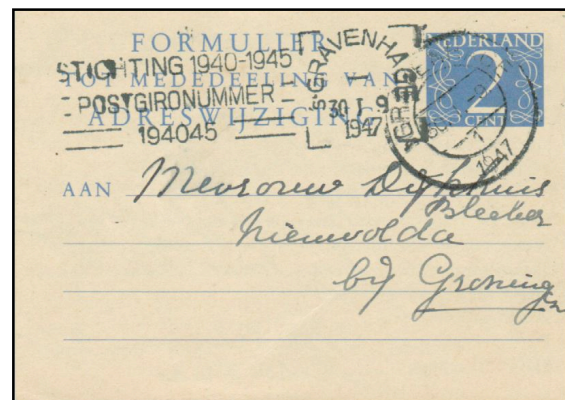 FORMULIER
TOT MEDEDEELING VAN
ADRESWIJZIGING
STICHTING 1940-1945
POSTGIRONUMMER
194045
'S-GRAVENHAGE
30 I 9
1947
NEDERLAND
2
CENT
1
1947
AAN Mevrouw Dijkhuis
Bleeker
Nieuwolda
bij Groningen